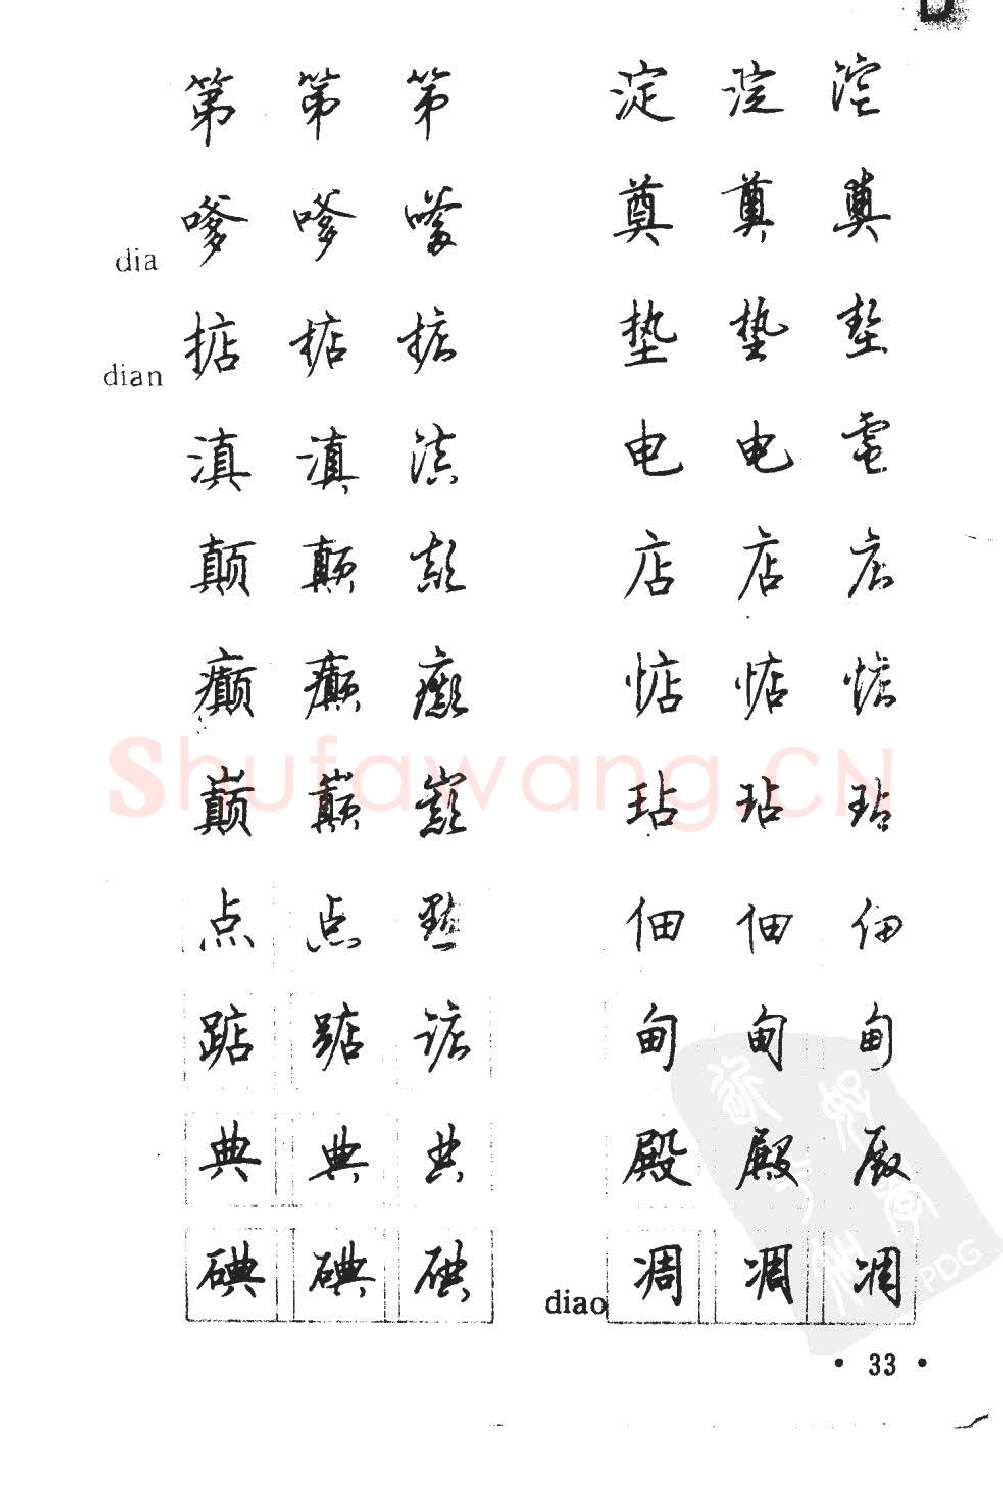 D
第 第 第
dia 嗲 嗲 嗲
dian 掂 掂 掂
滇 滇 滇
颠 颠 颠
癫 癫 癫
巅 巅 巅
点 点 點
踮 踮 踮
典 典 典
碘 碘 碘
淀 淀 淀
奠 奠 奠
垫 垫 垫
电 电 電
店 店 店
惦 惦 惦
玷 玷 玷
佃 佃 佃
甸 甸 甸
殿 殿 殿
diao 凋 凋 凋
Shufawang.CN
PDG
• 33 •